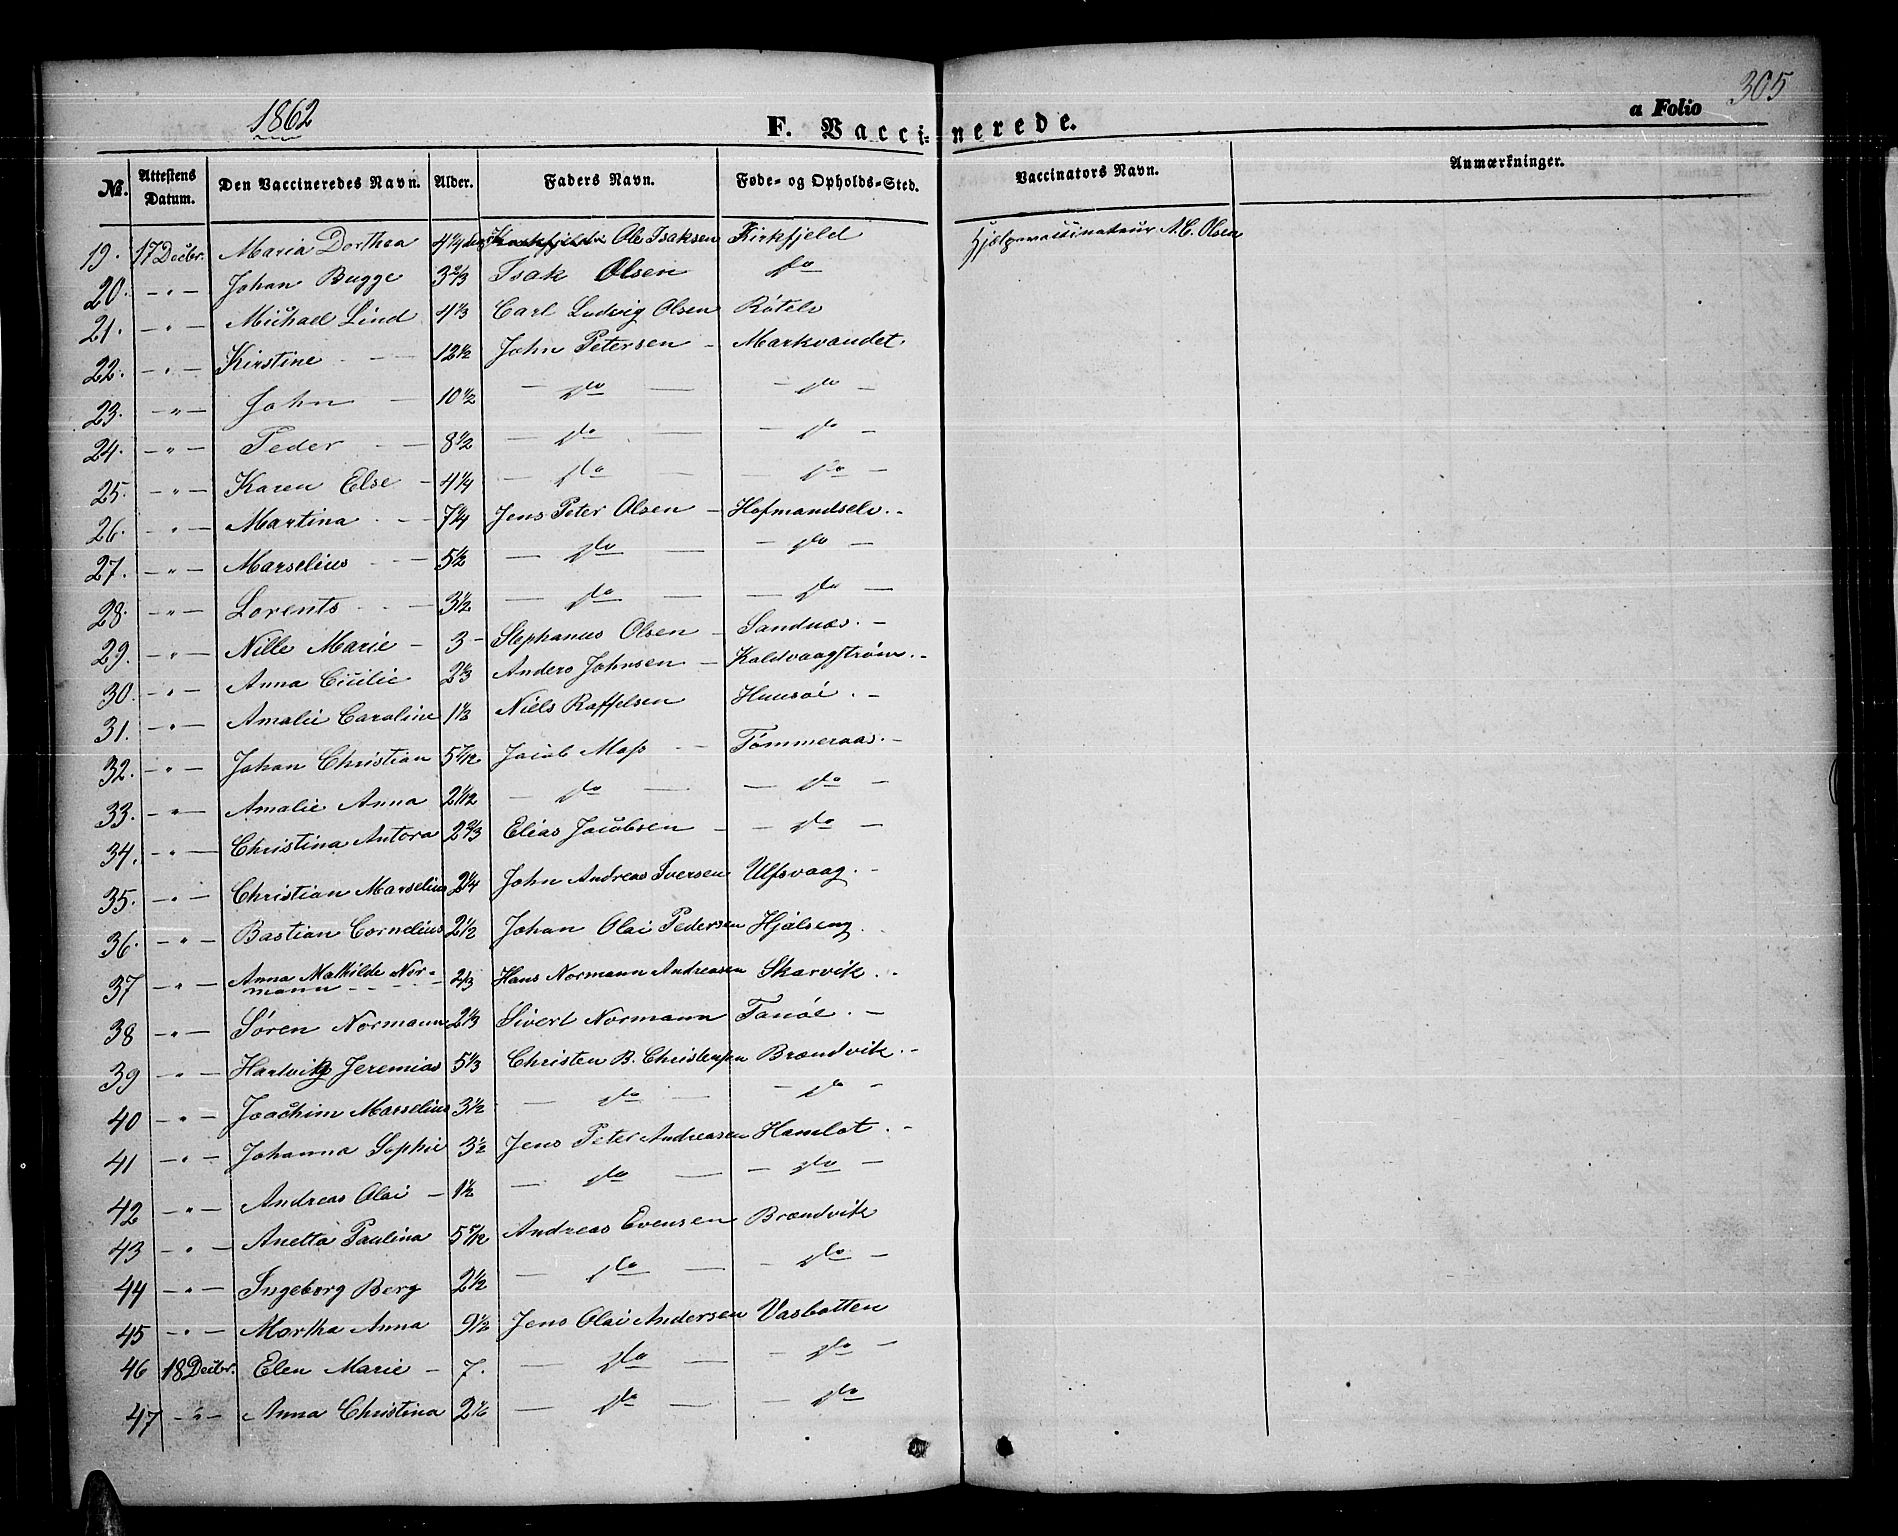 1862
F. Vaccinerede.
a Folio 305
Nr. Attestens Datum. Den Vaccineredes Navn. Alder. Faders Navn. Føde- og Opholds-Sted. Vaccinators Navn. Anmærkninger.
19. 17 Decbr. Maria Dorthea 4 1/4 Ole Isaksen Kirkfjeld Hjælpevaccinateur M. Olsen
20. — " — Johan Bugge 3 2/3 Isak Olsen do
21. — " — Michael Lind 4 1/3 Carl Ludvig Olsen Røtelv
22. — " — Kirstine 12 1/2 John Petersen — Markvandet.
23. — " — John — 10 1/2 — do — — do —
24. — " — Peder — 8 1/2 — do — — do —
25. — " — Karen Else — 4 1/4 — do — — do —
26. — " — Martina — 7 1/4 Jens Peter Olsen — Hofmandselv. -
27. — " — Marselius — 5 1/2 — do — — do —
28. — " — Lorents — 3 1/2 — do — — do —
29. — " — Nille Marie — 3 - Stephanus Olsen — Sandnæs. -
30. — " — Anna Cicilie 2 1/3 Anders Johnsen — Kaldvaagstrøm. -
31. — " — Amalie Caroline 1 1/3 Niels Raffelsen Huusøi. -
32. — " — Johan Christian 5 7/12 Jacob Moss — Tømmeraas. -
33. — " — Amalie Anna 2 1/12 — do — — do —
34. — " — Christina Antora 2 2/3 Elias Jacobsen — — do —
35. — " — Christian Marselius 2 1/4 John Andreas Iversen Ulfsvaag. -
36. — " — Bastian Cornelius 2 1/2 Johan Olai Pedersen Hjalseng.
37 — " — Anna Mathilde Nor-
mann Hans Normann Andreasen Skarvik. -
38 — " — Søren Normann 2 1/3 Sivert Normann Tanøe. -
39 — " — Hartvig Jeremias 5 1/3 Christen B. Christensen Brændvik. -
40 — " — Joachim Marselius 3 1/2 — do — — do —
41 — " — Johanna Sophie 3 1/2 Jens Peter Andreasen Hamlot. -
42 — " — Andreas Olai — 1 1/2 — do — — do —
43 — " — Anetta Paulina 5 5/12 Andreas Evensen Brændvik
44 — " — Ingeborg Berg 2 1/2 — do — — do —
45 — " — Martha Anna 9 1/2 Jens Olai Andersen Vasbotten
46 18 Decbr. Elen Marie — 7. — do — — do —
47 — " — Anna Christina 2 1/6 — do — — do —